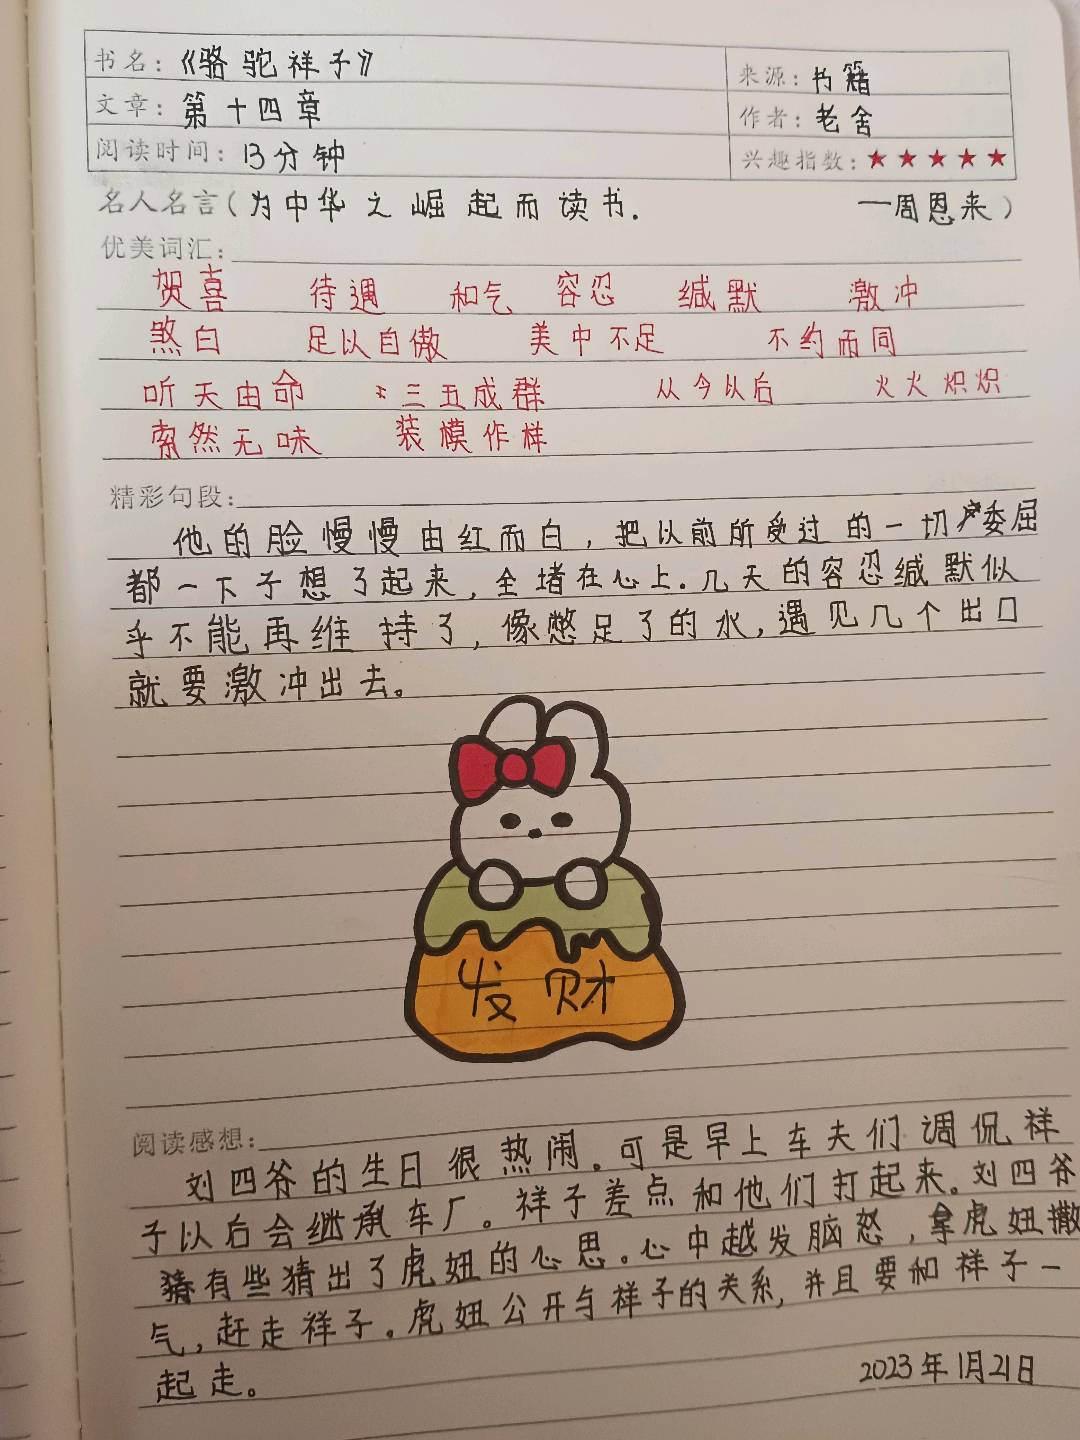 书名：《骆驼祥子》
来源：书籍
文章：第十四章
作者：老舍
阅读时间：13分钟
兴趣指数：★★★★★
名人名言（为中华之崛起而读书. —周恩来）
优美词汇：
贺喜 待遇 和气 容忍 缄默 激冲
煞白 足以自傲 美中不足 不约而同
听天由命 三五成群 从今以后 火火炽炽
索然无味 装模作样
精彩句段：
他的脸慢慢由红而白，把以前所受过的一切委屈
都一下子想了起来，全堵在心上.几天的容忍缄默似
乎不能再维持了，像憋足了的水，遇见几个出口
就要激冲出去。
发财
阅读感想：
刘四爷的生日很热闹。可是早上车夫们调侃祥
子以后会继承车厂。祥子差点和他们打起来。刘四爷
有些猜出了虎妞的心思。心中越发脑怒，拿虎妞撒
气，赶走祥子。虎妞公开与祥子的关系，并且要和祥子一
起走。
2023年1月21日